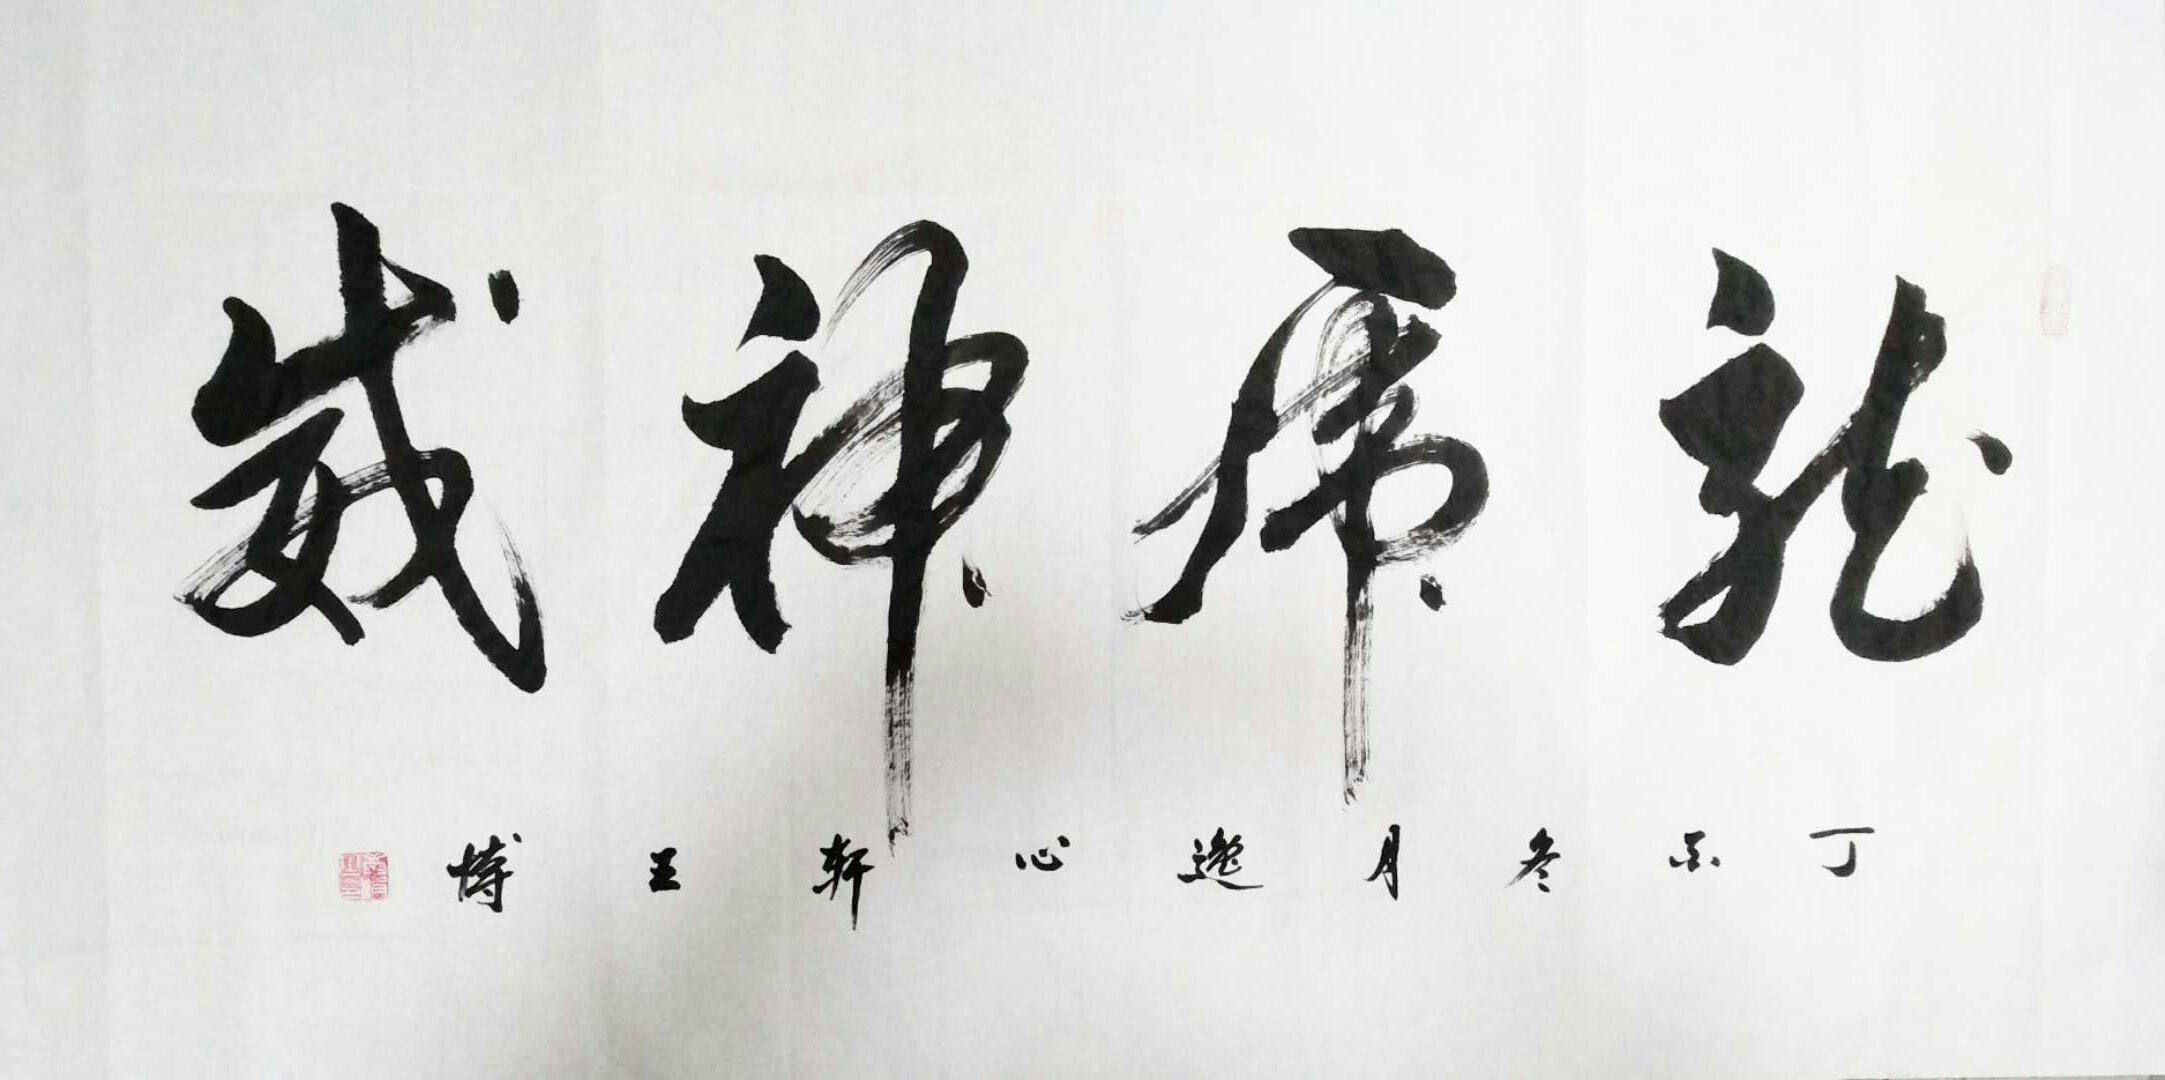 龍虎神威
丁酉冬月逸心軒王博